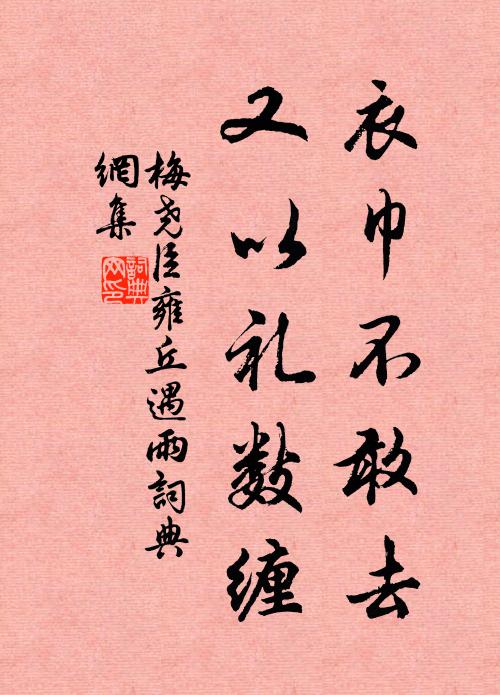 衣巾不敢去
又以礼数缠
梅尧臣雍丘遇雨詞典
網集
詞典
网印